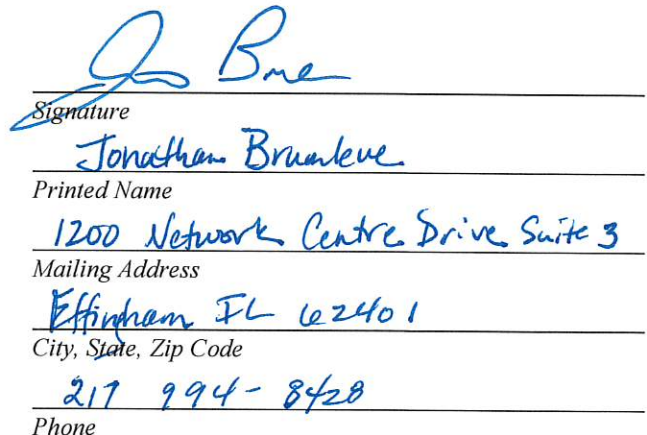 Signature
Jonathan Brumleve
Printed Name
1200 Network Centre Drive Suite 3
Mailing Address
Effingham IL 62401
City, State, Zip Code
217 994-8428
Phone